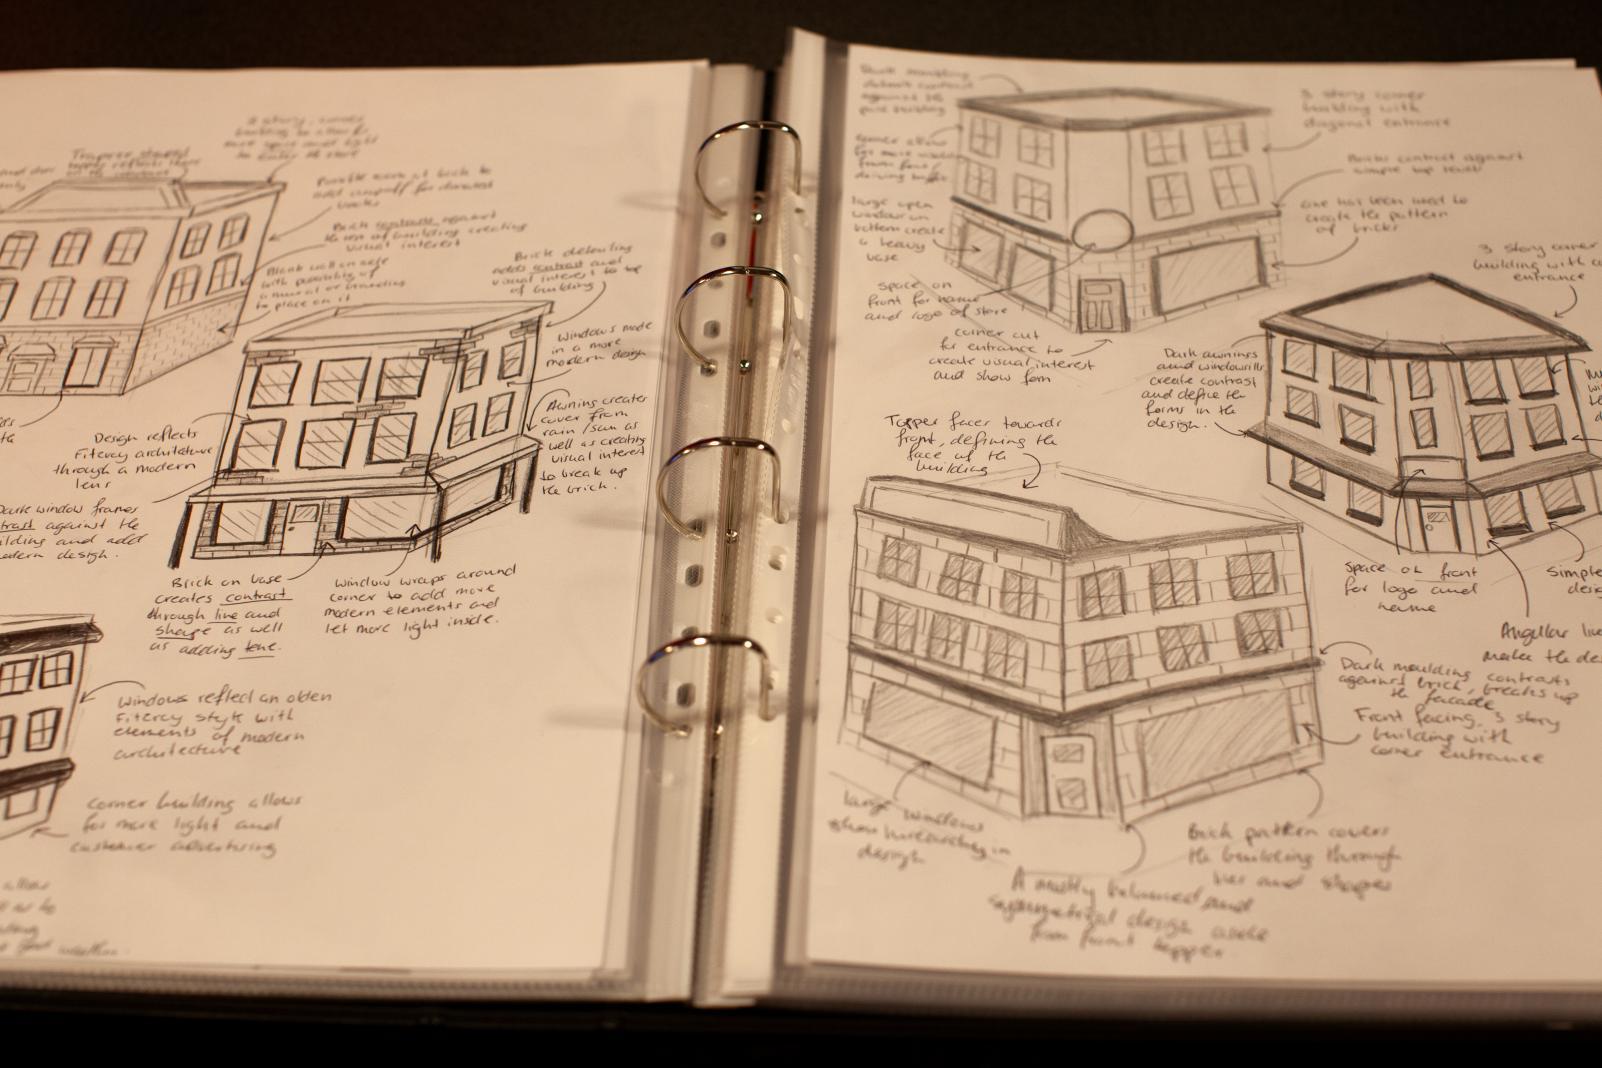 3 story, corner
building to allow for
more space and light
to enter the store
Topper shaped
topper reflects
Possible area at back to
add dropoff for donated
books
Brick contrasts against
the rest of building creating
visual interest
Blank wall on side
with possibility of
a mural or branding
to place on it
Brick detailing
adds contrast and
visual interest to top
of building
Windows made
in a more
modern design
Awning creates
cover from
rain / sun as
well as creating
visual interest
to break up
the brick.
Design reflects
Fitzroy architecture
through a modern
lens
Dark window frames
contrast against the
building and add
modern design.
Brick on base
creates contrast
through line and
shape as well
as adding tone.
Window wraps around
corner to add more
modern elements and
let more light inside.
Windows reflect an olden
Fitzroy style with
elements of modern
architecture
Corner building allows
for more light and
customer advertising
allow
good weather.
Dark moulding
contrast
against the
building
corner allows
for more
large open
windows on
bottom create
a heavy
base
Space on
front for name
and logo of store
corner cut
for entrance to
create visual interest
and show form
3 story corner
building with
diagonal entrance
Bricks contrast against
simple top level
Line has been used to
create the pattern
of bricks
3 story corner
building with a
entrance
Dark awnings
and windowsills
create contrast
and define the
forms in the
design.
Topper faces towards
front, defining the
face of the
building
Space on front
for logo and
name
Simple
desig
Angular lin
make the de
Dark moulding contrasts
against brick, breaks up
the facade
Front facing, 3 story
building with
corner entrance
Large windows
show hierarchy in
design
Brick pattern covers
the building through
lines and shapes
A mostly balanced and
symmetrical design aside
from front topper